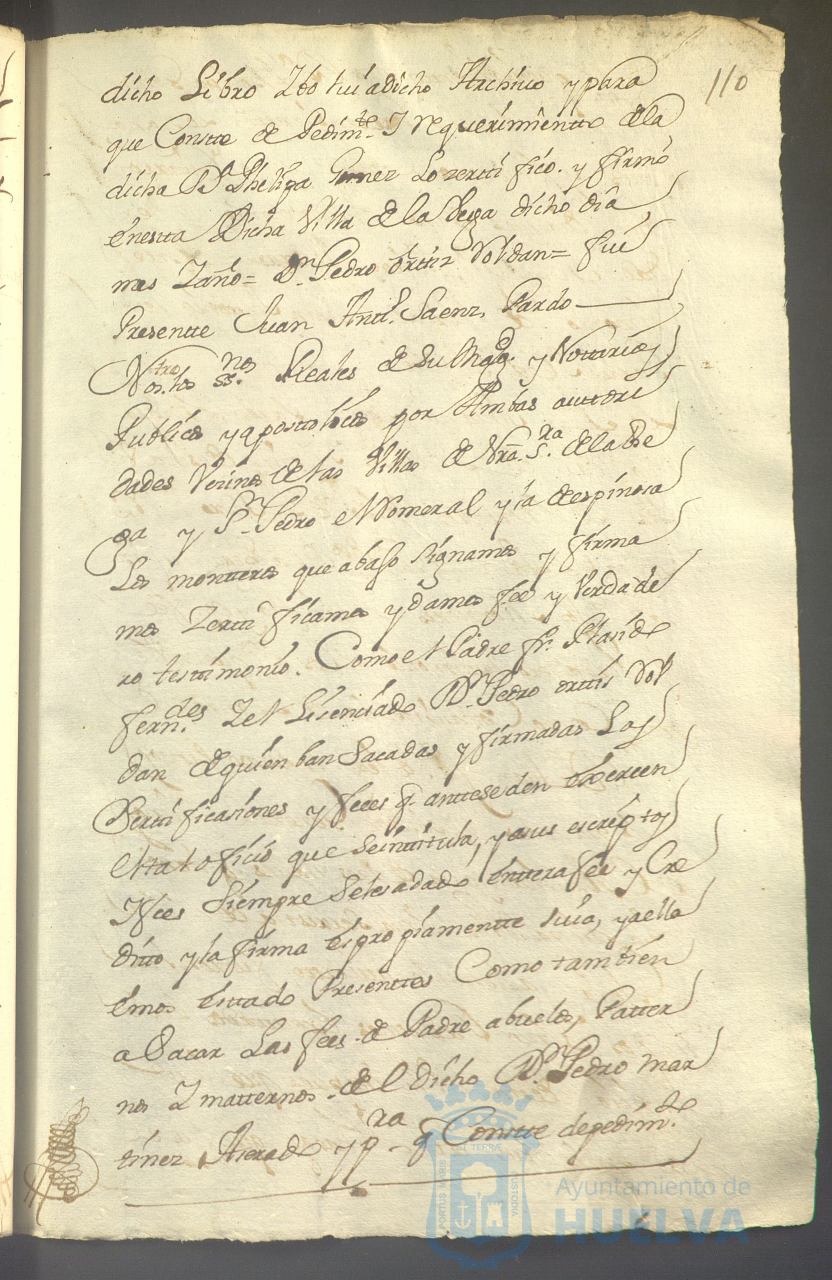 110
dicho Libro Zttotuia dicho Archivo y para
que Constte de Pedimto. I Requerimientto de la
dicha Da. Phelipa Gomez Lo zertti fico. y firmo
en esta dicha Villa de la Vega dicho dia
mes Zaño = Dn. Pedro Orttiz Voldan = fui
Presentte Juan Antto. Saenz Pardo
Nos.tros los ss.nos Reales de su Magd. y Nottarios
Publicos y apostolicos por Ambas auttori
dades Vezinos de las Villas de Nra. Sra. de la Ve
ga y Sn. Pedro el Romeral y ia de espinosa
Los montteros que abajo signamos y firma
mos Zertti ficamos y damos fee y Verdade
ro testtimonio. Como el Padre fr. Plasido
fernz.des Z el Lisenciado Dn. Pedro orttis Vol
dan de quien ban Sacadas y firmadas Las
Sertti ficasiones y fees q. anttese den exercen
el tal oficio que se inttitula, y a sus escriptos
I fees Siempre se les a dado enttera fee y Cre
ditto y la firma es pro piamentte suia, y a ella
emos esttado Presenttes Como tambien
a Sacar Las fees de Padre abuelos, Patter
nos Z matternos del dicho Dn. Pedro Mar
tinez y pra. q Constte de pedimto.
PORTUS MARIS ET TERRAE CUSTODIA
Ayuntamiento de
HUELVA